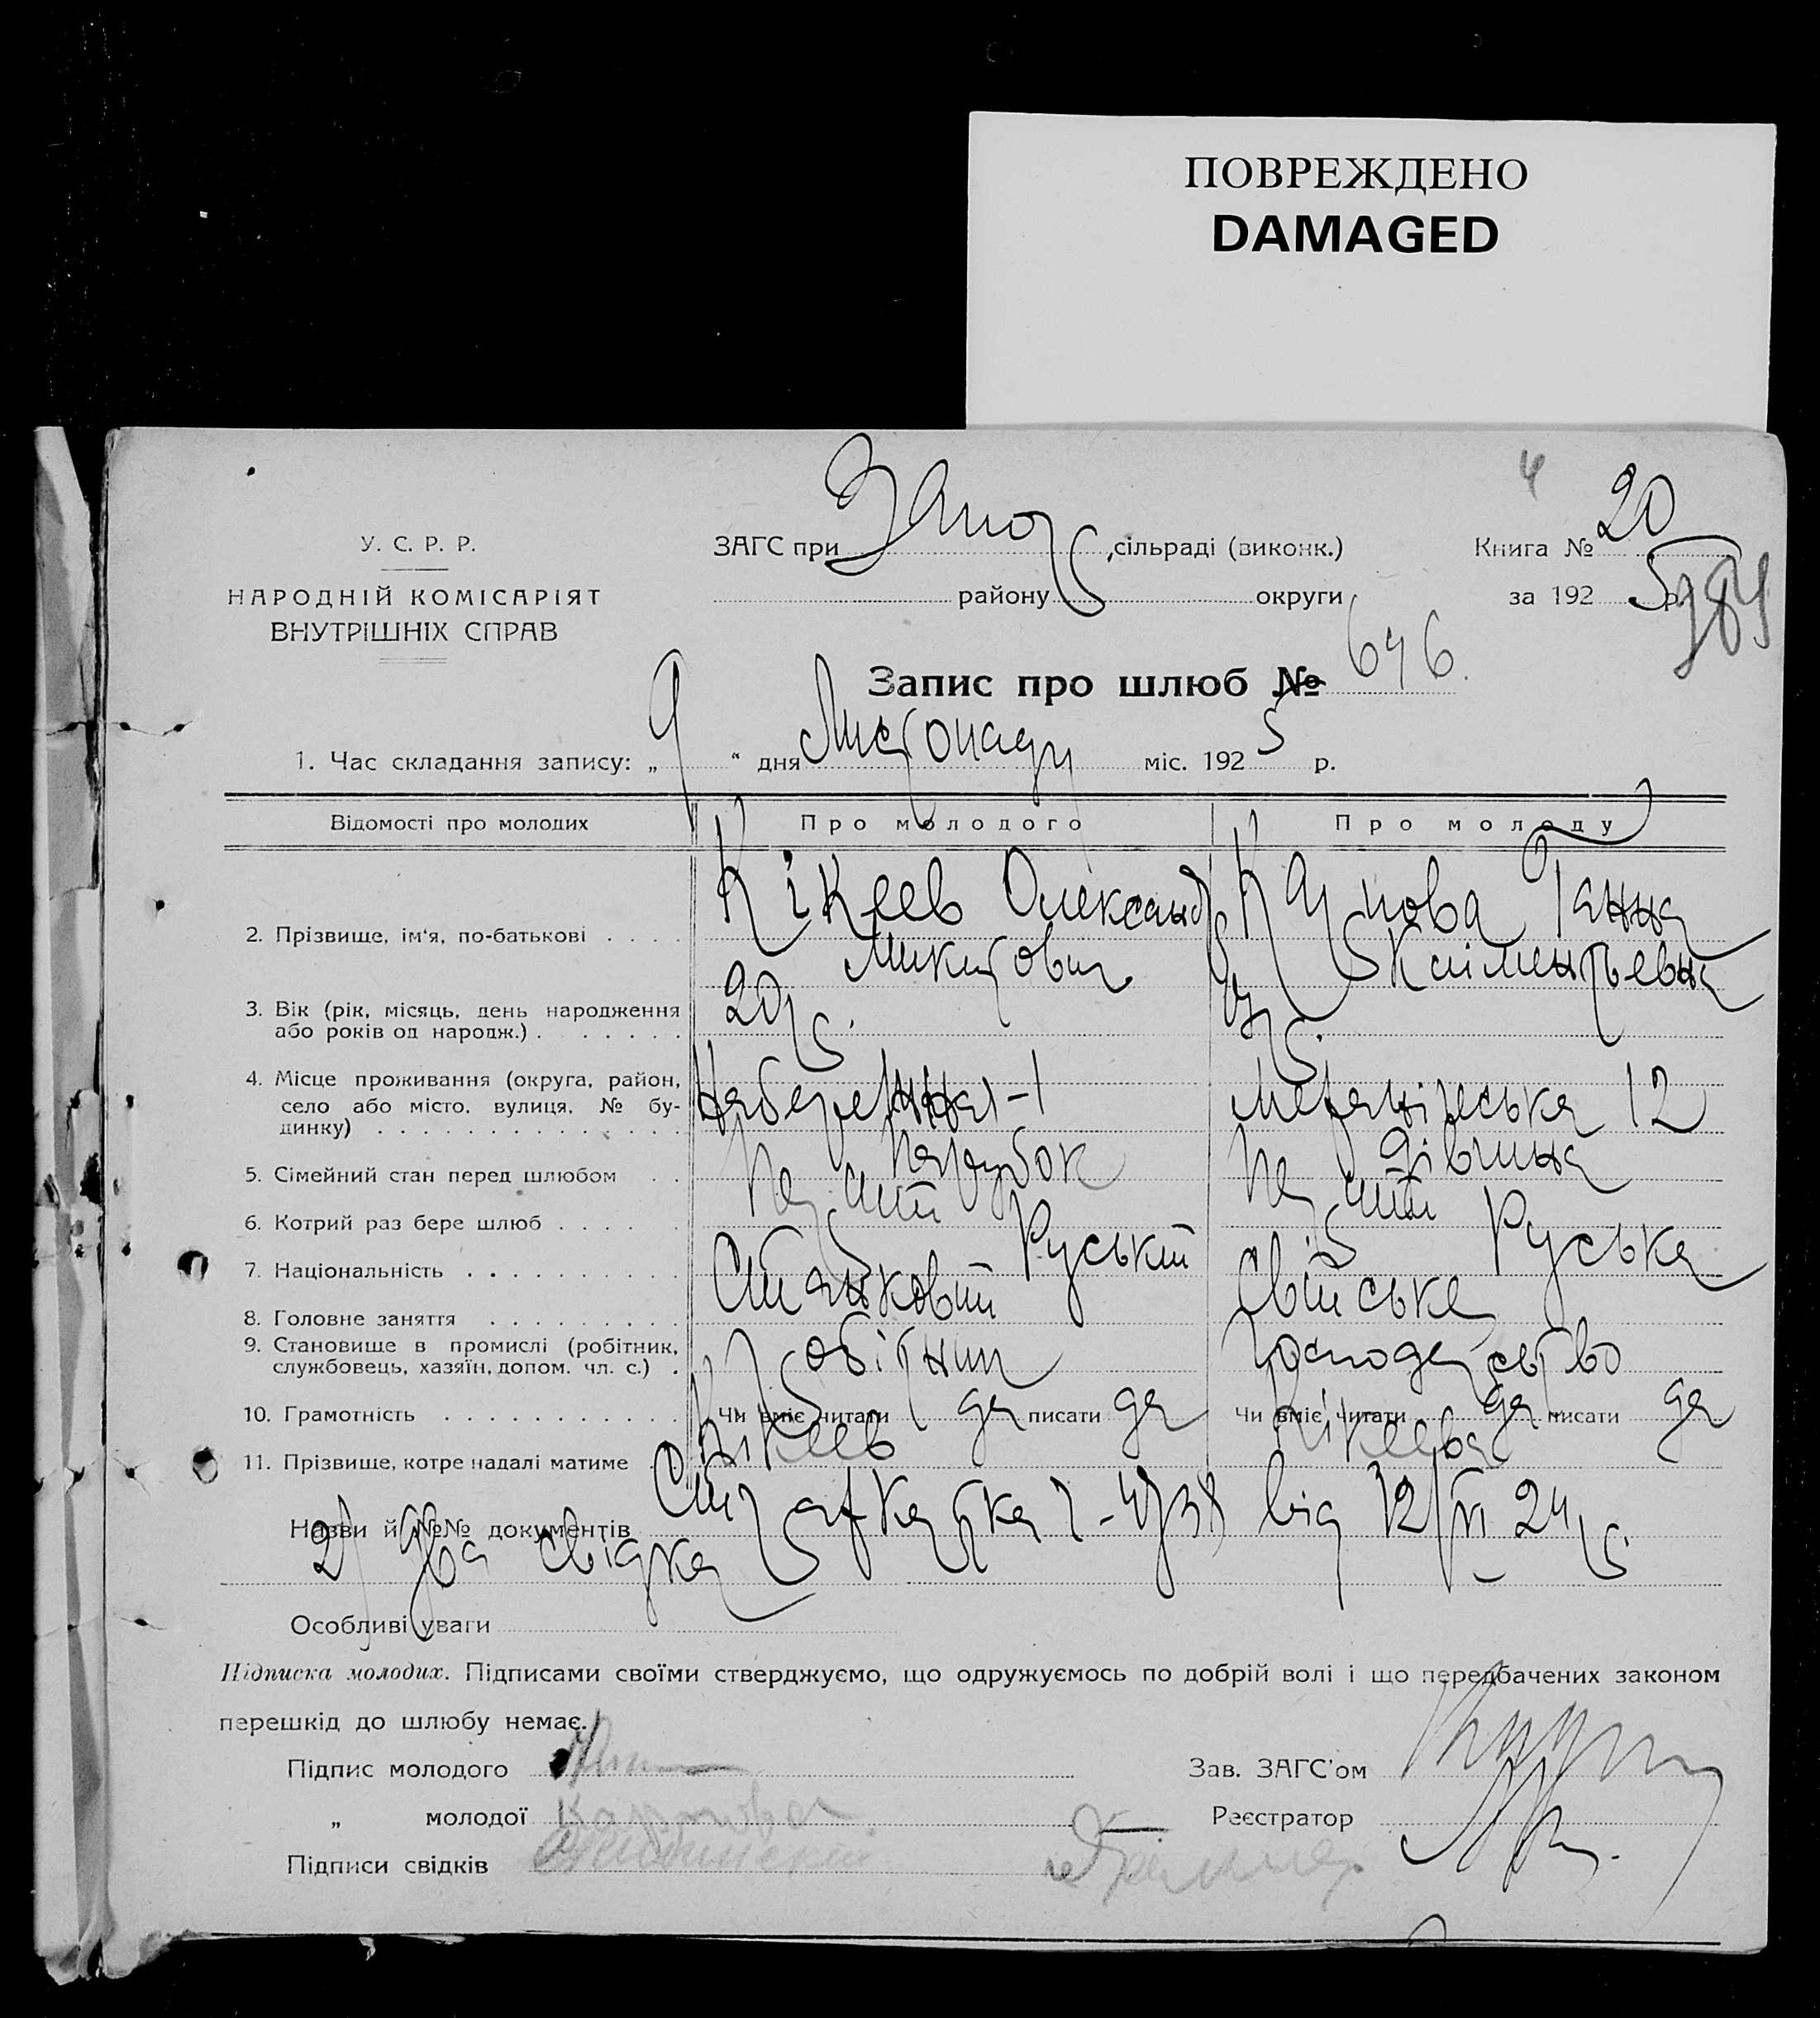 ПОВРЕЖДЕНО
DAMAGED
У. С. Р. Р.
НАРОДНІЙ КОМІСАРІЯТ
ВНУТРІШНІХ СПРАВ
ЗАГС при Запор. сільраді (виконк.)
району округи
Книга № 20
за 1925 р.
Запис про шлюб № 646.
1. Час складання запису: „ 9 “ дня Листопаду міс. 1925 р.
Відомості про молодих Про молодого Про молоду
2. Прізвище, ім‘я, по-батькові . . . . Кікеев Олександр Микитович Карпова Ганна Климентьевна
3. Вік (рік, місяць, день народження
або років од народж.) . . . . . . . 20 р.
4. Місце проживання (округа, район,
село або місто, вулиця, № бу-
динку) . . . . . . . . . . . . . . Набережная-1 12
5. Сімейний стан перед шлюбом . . Парубок Дівчина
6. Котрий раз бере шлюб . . . . . Перший Перший
7. Національність . . . . . . . . . . Руський Руська
8. Головне заняття . . . . . . . . . Свійське
9. Становище в промислі (робітник,
службовець, хазяїн, допом. чл. с.) . робітник господарство
10. Грамотність . . . . . . . . . . . Чи вміє читати да писати да Чи вміє читати да писати да
11. Прізвище, котре надалі матиме . Кікеев Кікеева
Назви й №№ документів від 12/VI 24 р.
2) два свідка
Особливі уваги
Підписка молодих. Підписами своїми стверджуємо, що одружуємось по добрій волі і що передбачених законом
перешкід до шлюбу немає.
Підпис молодого
Зав. ЗАГС'ом
„ молодої Карпова
Реєстратор
Підписи свідків